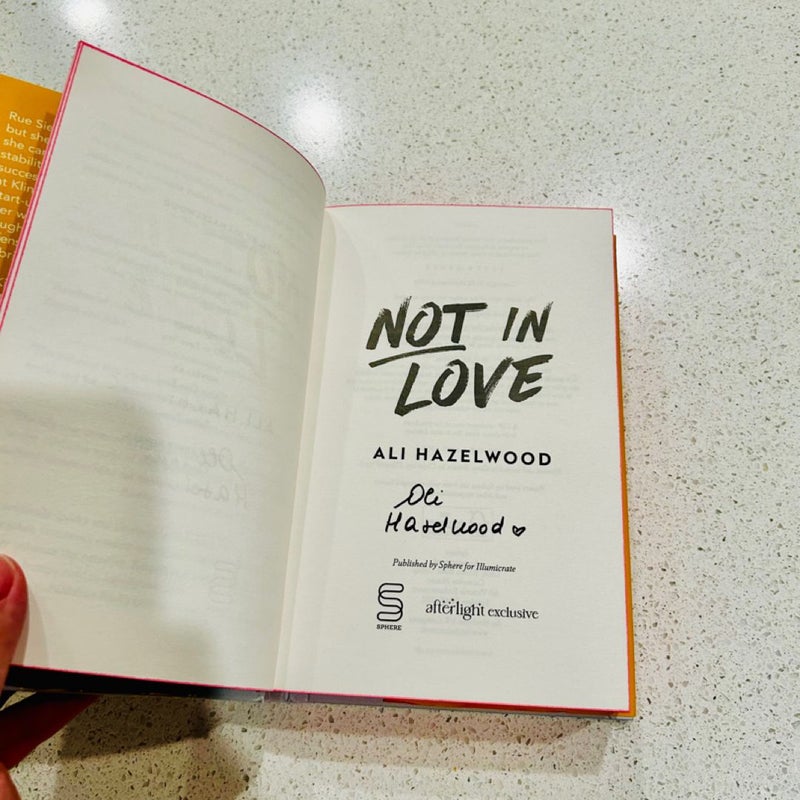 Rue Sie
but she
she ca
stabilit
succes
at Klin
tart-u
er w
ough
ens
br
NOT IN
LOVE
ALI HAZELWOOD
Ali
Hazelwood
Published by Sphere for Illumicrate
SPHERE
afterlight exclusive